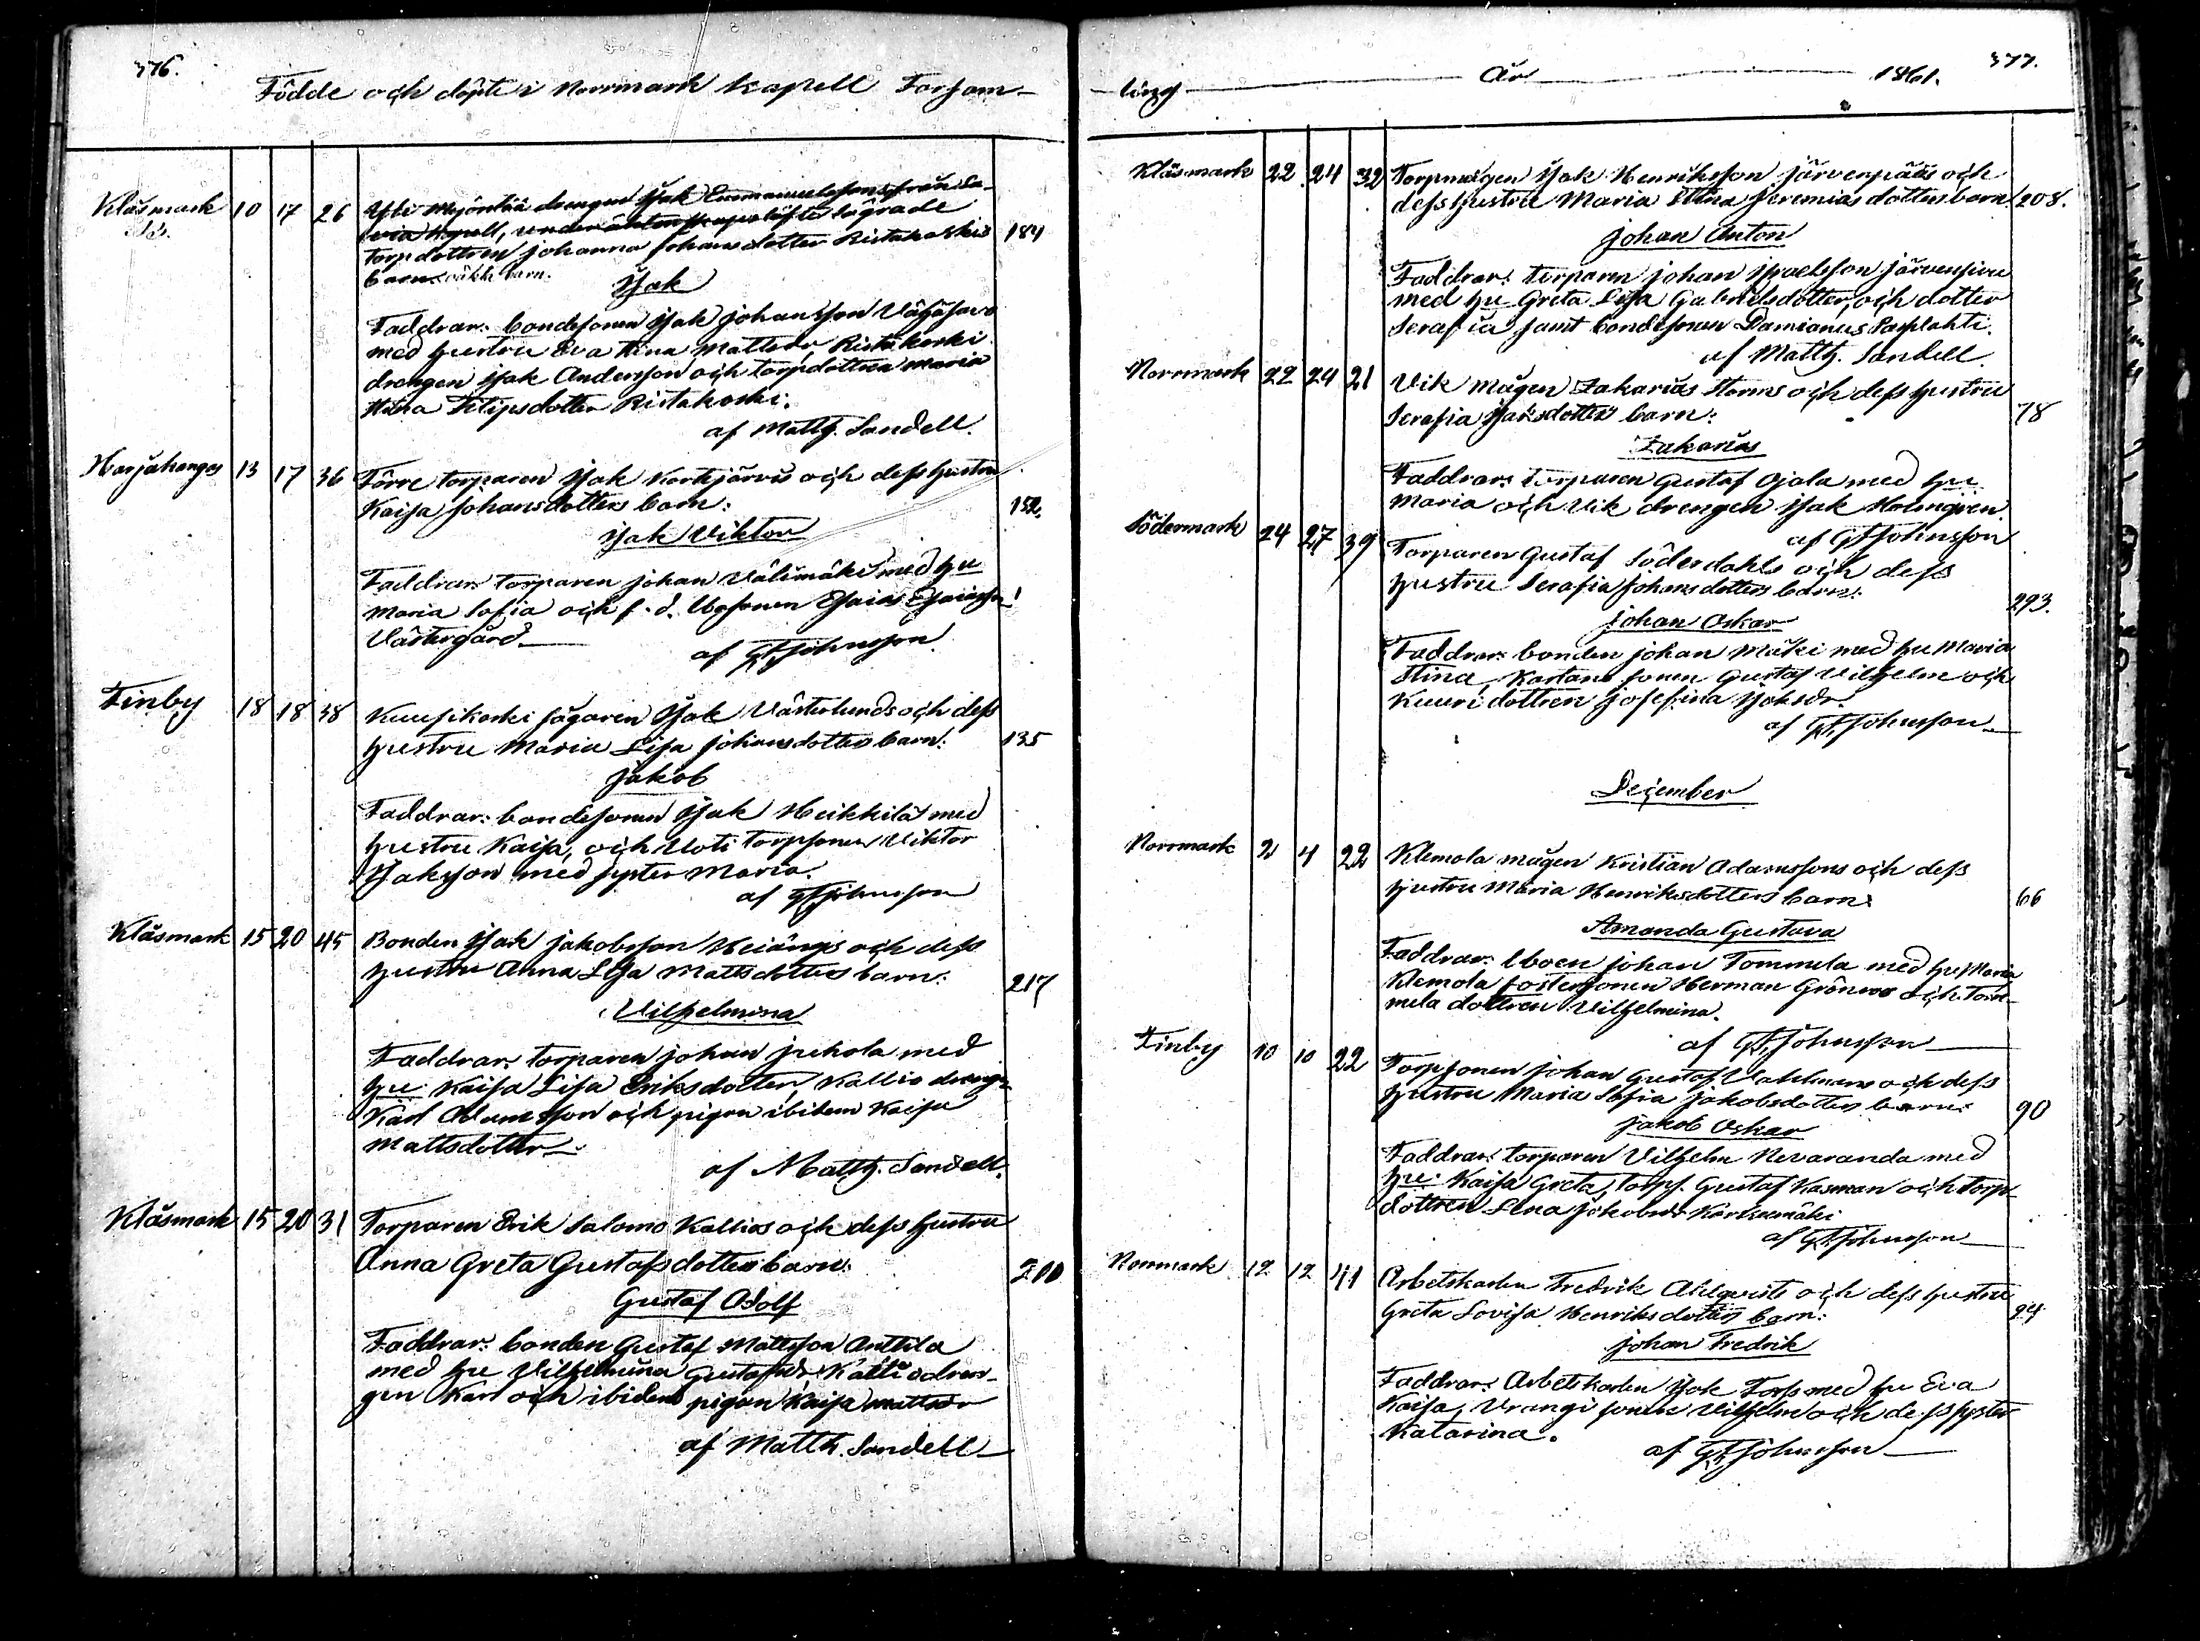 376.
Födde och döpte i Norrmark Kapell Forsam-
Klåsmark 10 17 26 Yli Mejöntää drengen Isak Emmanuelssons från La-
via Kapell, under äktenskapslöfte lägrade
torpdottren Johanna Johansdotter Ristakoskis 184
barn. oäkta barn.
Isak
Faddrar: bondesonen Isak Johansson Vähäsavo
med hustru Eva Stina Mattsdr Ristakoski
drengen Isak Andersson och torpdottren Maria
Stina Filipsdotter Ristakoski.
af Matth. Sandell.
Harjakangas 13 17 36 Förre torparen Isak Kortejärvis och dess hustru
Kaisa Johansdotters barn: 152.
Isak Viktor
Faddrar: torparen Johan Välimäki med hu
Maria Sofia och f.d. Ubosonen Esaias Esaiasson
Västergård.
af GFJohnsson.
Finby 18 18 38 Kuusikoski sågaren Isak Västerlunds och dess
hustru Maria Lisa Johansdotters barn: 135
Jakob
Faddrar: bondesonen Isak Heikkilä med
hustru Kaisa, och Uoti torpsonen Viktor
Isaksson med syster Maria.
af GFJohnsson
Klåsmark 15 20 45 Bonden Isak Jakobsson Heiängs och dess
hustru Anna Lisa Mattsdotters barn: 217
Vilhelmina
Faddrar: torparen Johan Juhola med
hu: Kaisa Lisa Eriksdotter, Kallio dreng:
Karl Adamsson och pigan ibidem Kaisa
Mattsdotter
af Matth. Sandell.
Klåsmark 15 20 31 Torparen Erik Salomo Kallios och dess hustru
Anna Greta Gustafsdotters barn: 210
Gustaf Adolf
Faddrar: bonden Gustaf Mattsson Anttila
med hu Vilhelmina Gustafsdr Kallio dren-
gen Karl och ibidem pigan Kaisa Mattsdr
af Matth. Sandell
377.
ling År 1861.
Klåsmark 22 24 32 Torpmågen Isak Henriksson Järvenpääs och
dess hustru Maria Stina Jeremias dotters barn: 208.
Johan Anton
Faddrar: torparen Johan Israelsson Järvensivu
med hu Greta Lisa Gabrielsdotter, och dotter
Serafia samt bondesonen Damianus Paslahti.
af Matth. Sandell
Norrmark 22 24 21 Vik mågen Zakarias Storms och dess hustru
Serafia Isaksdotters barn: 78
Zakarias
Faddrar: torparen Gustaf Ojala med hu
Maria och Vik drengen Isak Holmgren.
af GFJohnsson
Södermark 24 27 39 Torparen Gustaf Söderdahls och dess
hustru Serafia Johansdotters barn: 293.
Johan Oskar
Faddrar: bonden Johan Mäki med hu Maria
Stina, Kartano sonen Gustaf Vilhelm och
Kuuri dottren Josefina Isaksdr.
af GFJohnsson
December
Norrmark 2 4 22 Klemola mågen Kristian Adamssons och dess
hustru Maria Henriksdotters barn: 66
Amanda Gustava
Faddrar: Uboen Johan Tommila med hu Maria
Klemola fostersonen Herman Grönroos och Tom-
mila dottren Vilhelmina.
af GFJohnsson
Finby 10 10 22 Torpsonen Johan Gustaf Vahlmans och dess
hustru Maria Sofia Jakobsdotters barn: 90
Jakob Oskar
Faddrar: torparen Vilhelm Nevaranda med
hu: Kaisa Greta, torps. Gustaf Kasman och torp-
dottren Lena Jakobsdr
af GFJohnsson
Norrmark 12 12 41 Arbetskarlen Fredrik Ahlqvists och dess hustru
Greta Lovisa Henriksdotters barn: 94
Johan Fredrik
Faddrar: Arbetskarlen Isak Fors med hu Eva
Kaisa, Vrangi sonen Vilhelm och dess syster
Katarina.
af GFJohnsson